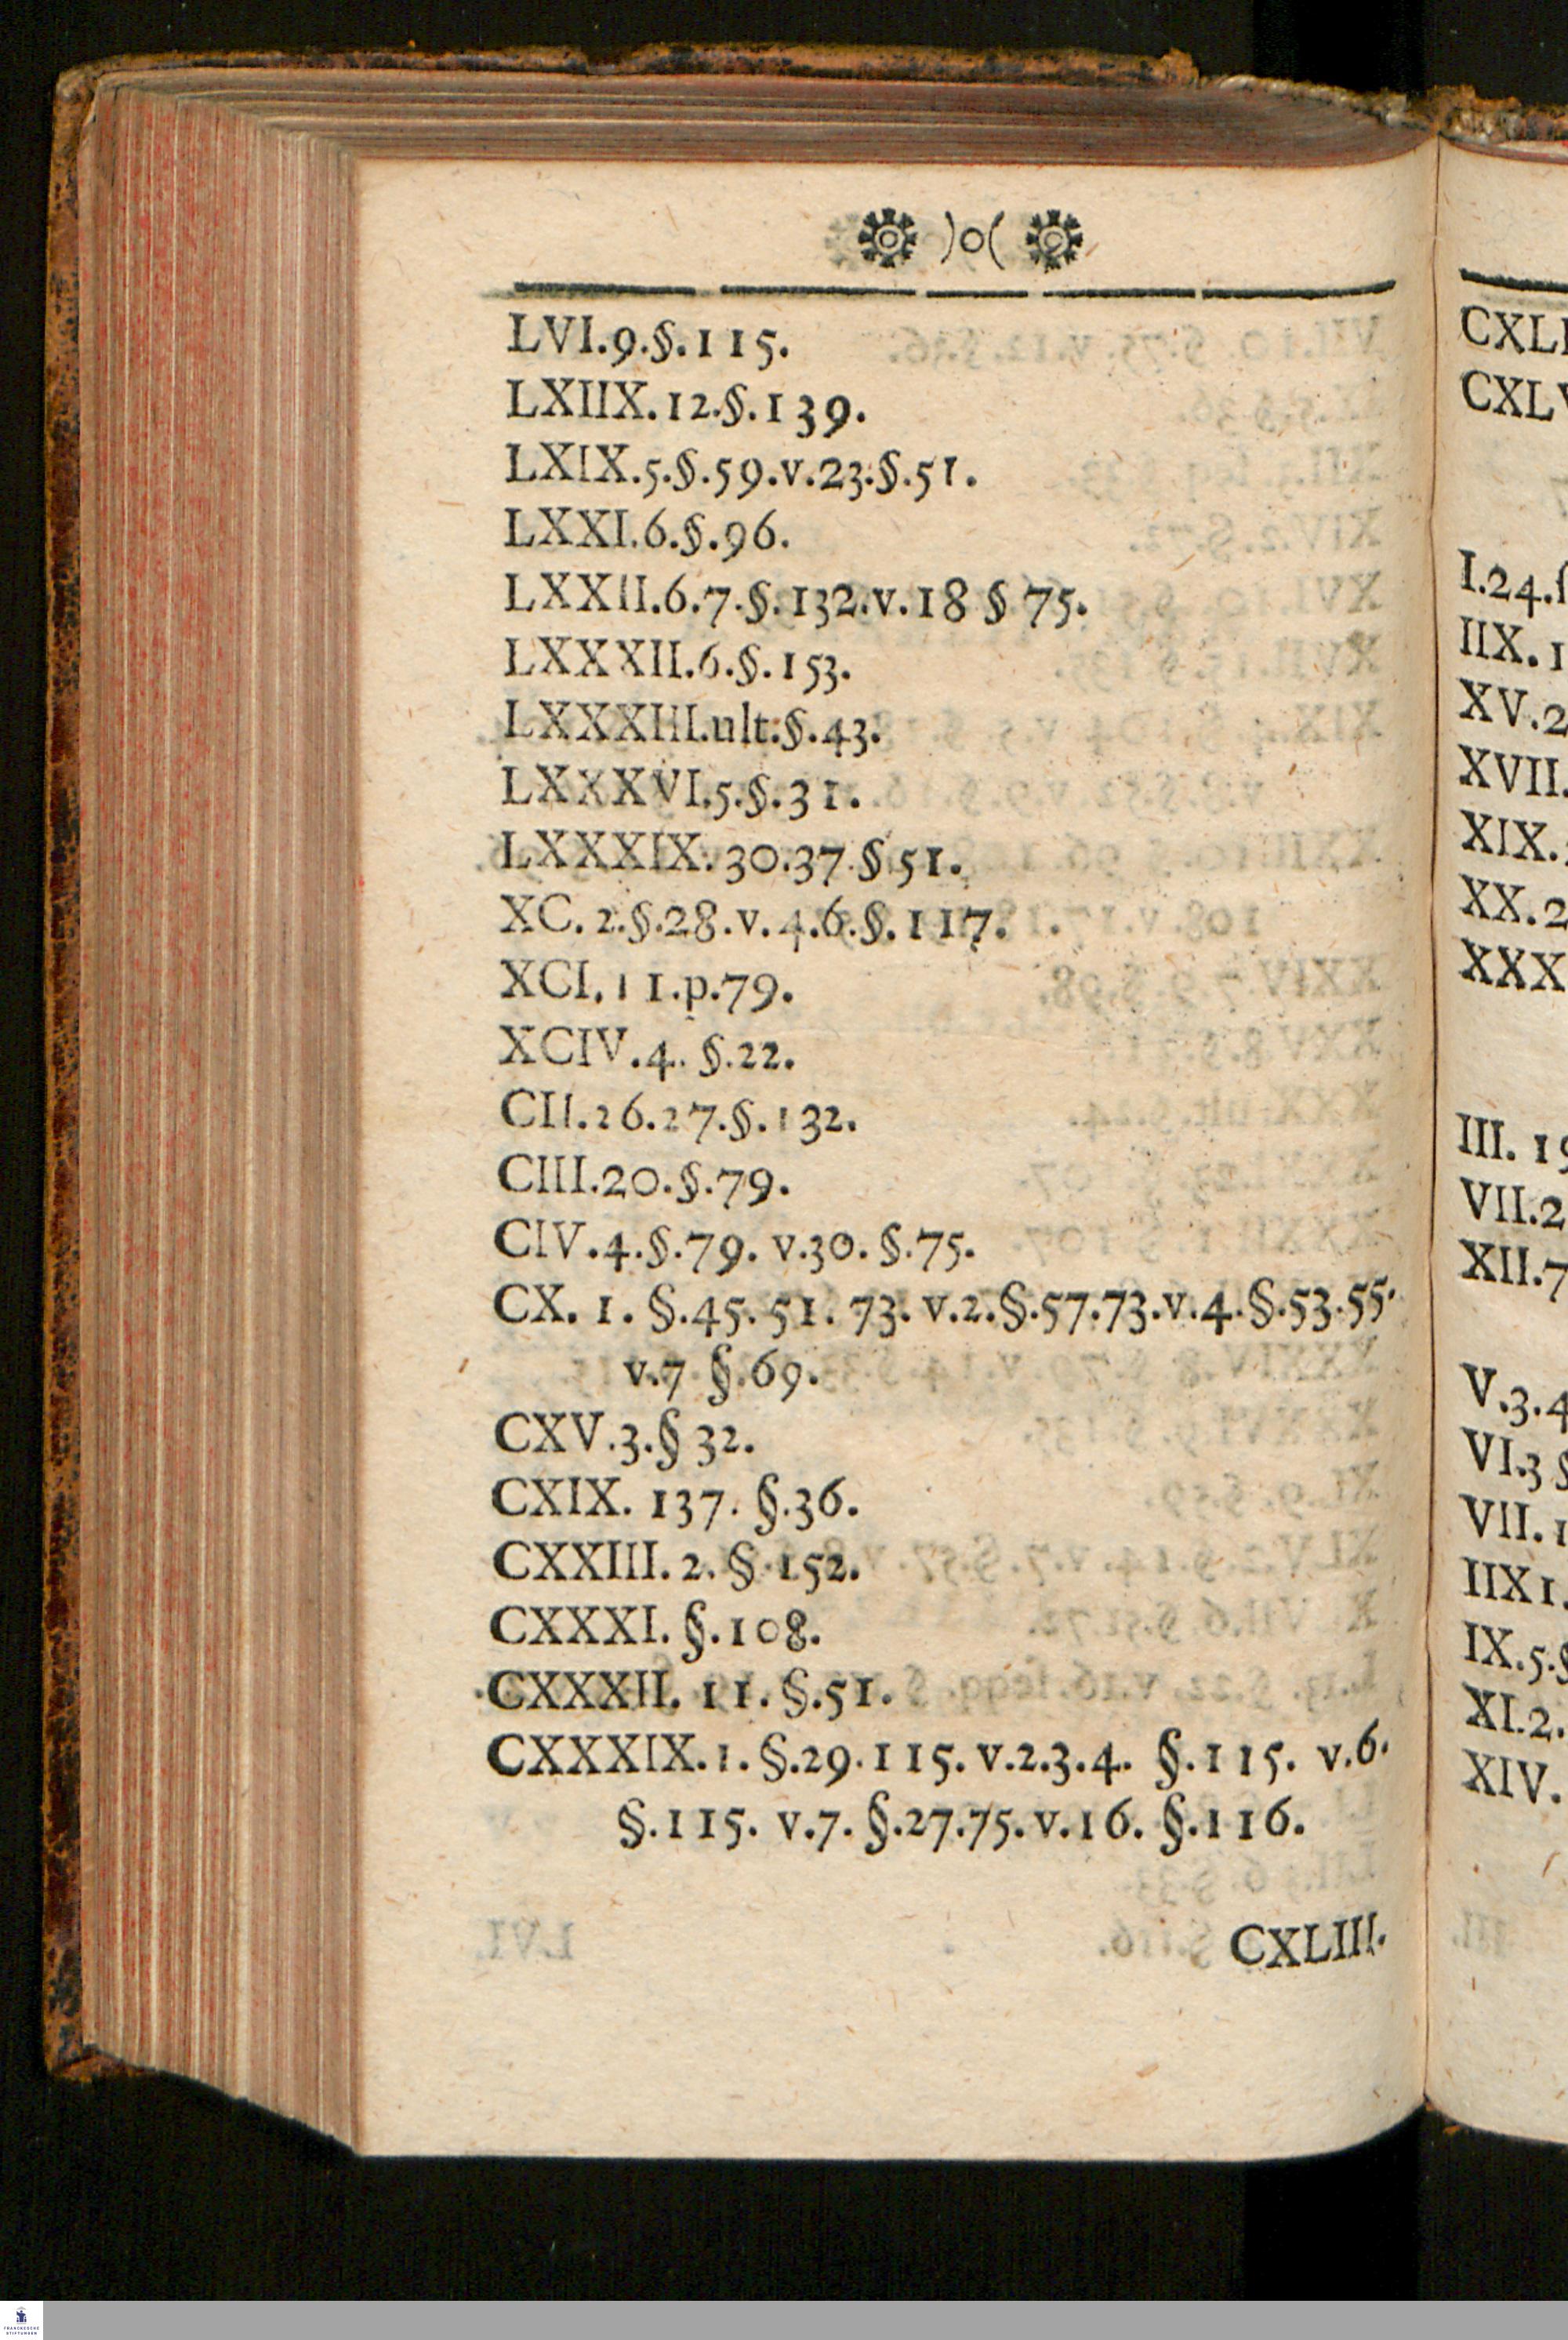 )o(
LVI.9.§.115.
LXIIX.12.§.139.
LXIX.5.§.59.v.23.§.51.
LXXI.6.§.96.
LXXII.6.7.§.132.v.18 § 75.
LXXXII.6.§.153.
LXXXIII.ult:§.43.
LXXXVI.5.§.31.
LXXXIX.30.37.§ 51.
XC. 2.§.28.v.4.6.§.117.
XCI. 11.p.79.
XCIV.4. §.22.
CII.26.27.§.132.
CIII.20.§.79.
CIV.4.§.79. v.30. §.75.
CX. 1. §.45. 51. 73. v.2.§.57.73.v.4.§.53.55.
v.7 §.69.
CXV.3.§ 32.
CXIX. 137. §.36.
CXXIII. 2. § 152.
CXXXI. §.108.
CXXXII. 11. §.51.
CXXXIX.1. §.29.115. v.2.3.4. §.115. v.6.
§.115. v.7. §.27.75.v.16. §.116.
CXLIII.
I.24.
IIX.
XV.2
XVII.
XIX.
XX.2
XXX
III. 19
VII.2
XII.7
V.3.4
VI.3 §
VII. 1
IIX 1.
IX.5.§
XI.2.
XIV.
FRANCKESCHE
STIFTUNGEN